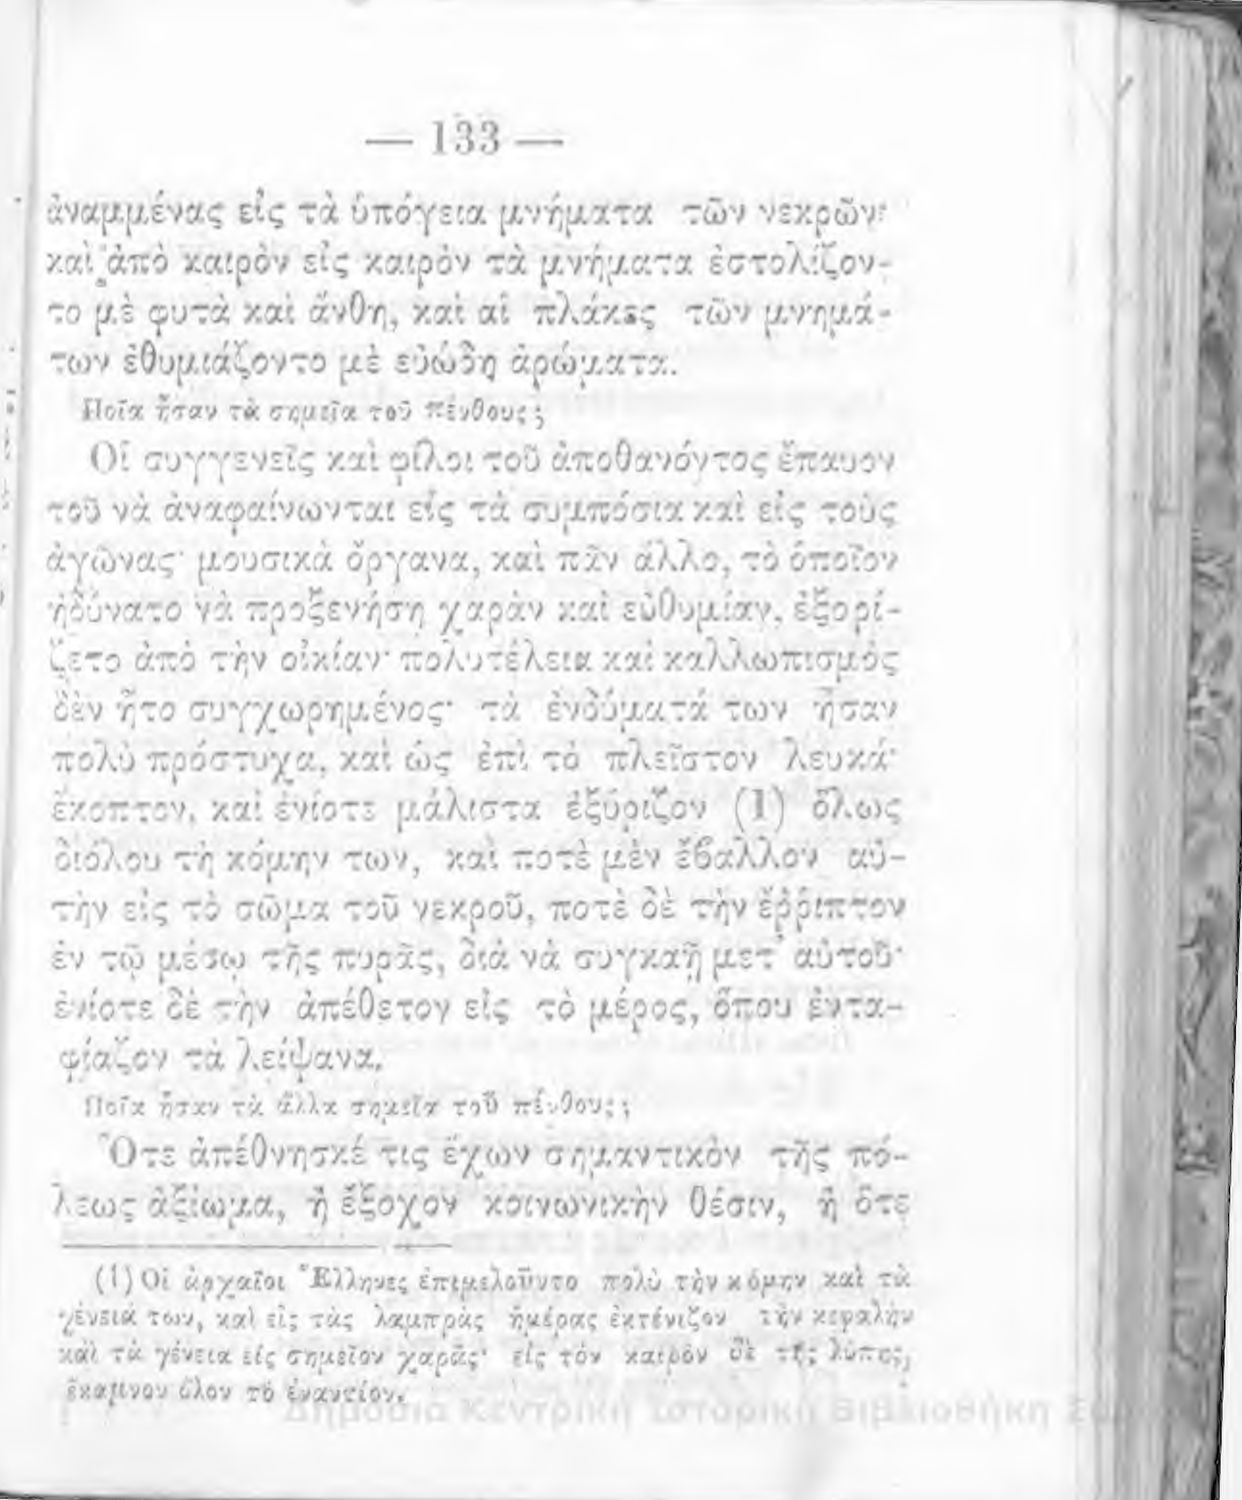 — 133 —
ἀναμμένας εἰς τὰ ὑπόγεια μνήματα τῶν νεκρῶν·
καὶ ἀπὸ καιρὸν εἰς καιρὸν τὰ μνήματα ἐστολίζον-
το μὲ φυτὰ καὶ ἄνθη, καὶ αἱ πλάκες τῶν μνημά-
των ἐθυμιάζοντο μὲ εὐώδη ἀρώματα.
Ποῖα ἦσαν τὰ σημεῖα τοῦ πένθους;
Οἱ συγγενεῖς καὶ φίλοι τοῦ ἀποθανόντος ἔπαυον
τοῦ νὰ ἀναφαίνωνται εἰς τὰ συμπόσια καὶ εἰς τοὺς
ἀγῶνας· μουσικὰ ὄργανα, καὶ πᾶν ἄλλο, τὸ ὁποῖον
ἠδύνατο νὰ προξενήσῃ χαρὰν καὶ εὐθυμίαν, ἐξορί-
ζετο ἀπὸ τὴν οἰκίαν· πολυτέλεια καὶ καλλωπισμὸς
δὲν ἦτο συγχωρημένος· τὰ ἐνδύματά των ἦσαν
πολὺ πρόστυχα, καὶ ὡς ἐπὶ τὸ πλεῖστον λευκά·
ἔκοπτον, καὶ ἐνίοτε μάλιστα ἐξύριζον (1) ὅλως
διόλου τὴ κόμην των, καὶ ποτὲ μὲν ἔβαλλον αὐ-
τὴν εἰς τὸ σῶμα τοῦ νεκροῦ, ποτὲ δὲ τὴν ἔῤῥιπτον
ἐν τῷ μέσῳ τῆς πυρᾶς, διὰ νὰ συγκαῇ μετ' αὐτοῦ·
ἐνίοτε δὲ τὴν ἀπέθετον εἰς τὸ μέρος, ὅπου ἐντα-
φίαζον τὰ λείψανα.
Ποῖα ἦσαν τὰ ἄλλα σημεῖα τοῦ πένθους;
Ὅτε ἀπέθνησκέ τις ἔχων σημαντικὸν τῆς πό-
λεως ἀξίωμα, ἢ ἔξοχον κοινωνικὴν θέσιν, ἢ ὅτε
(1) Οἱ ἀρχαῖοι Ἕλληνες ἐπιμελοῦντο πολὺ τὴν κόμην καὶ τὰ
γένειά των, καὶ εἰς τὰς λαμπρὰς ἡμέρας ἐκτένιζον τὴν κεφαλὴν
καὶ τὰ γένεια εἰς σημεῖον χαρᾶς· εἰς τὸν καιρὸν δὲ τῆς λύπης,
ἔκαμνον ὅλον τὸ ἐναντίον.
Δημόσια Κεντρική Ιστορική Βιβλιοθήκη